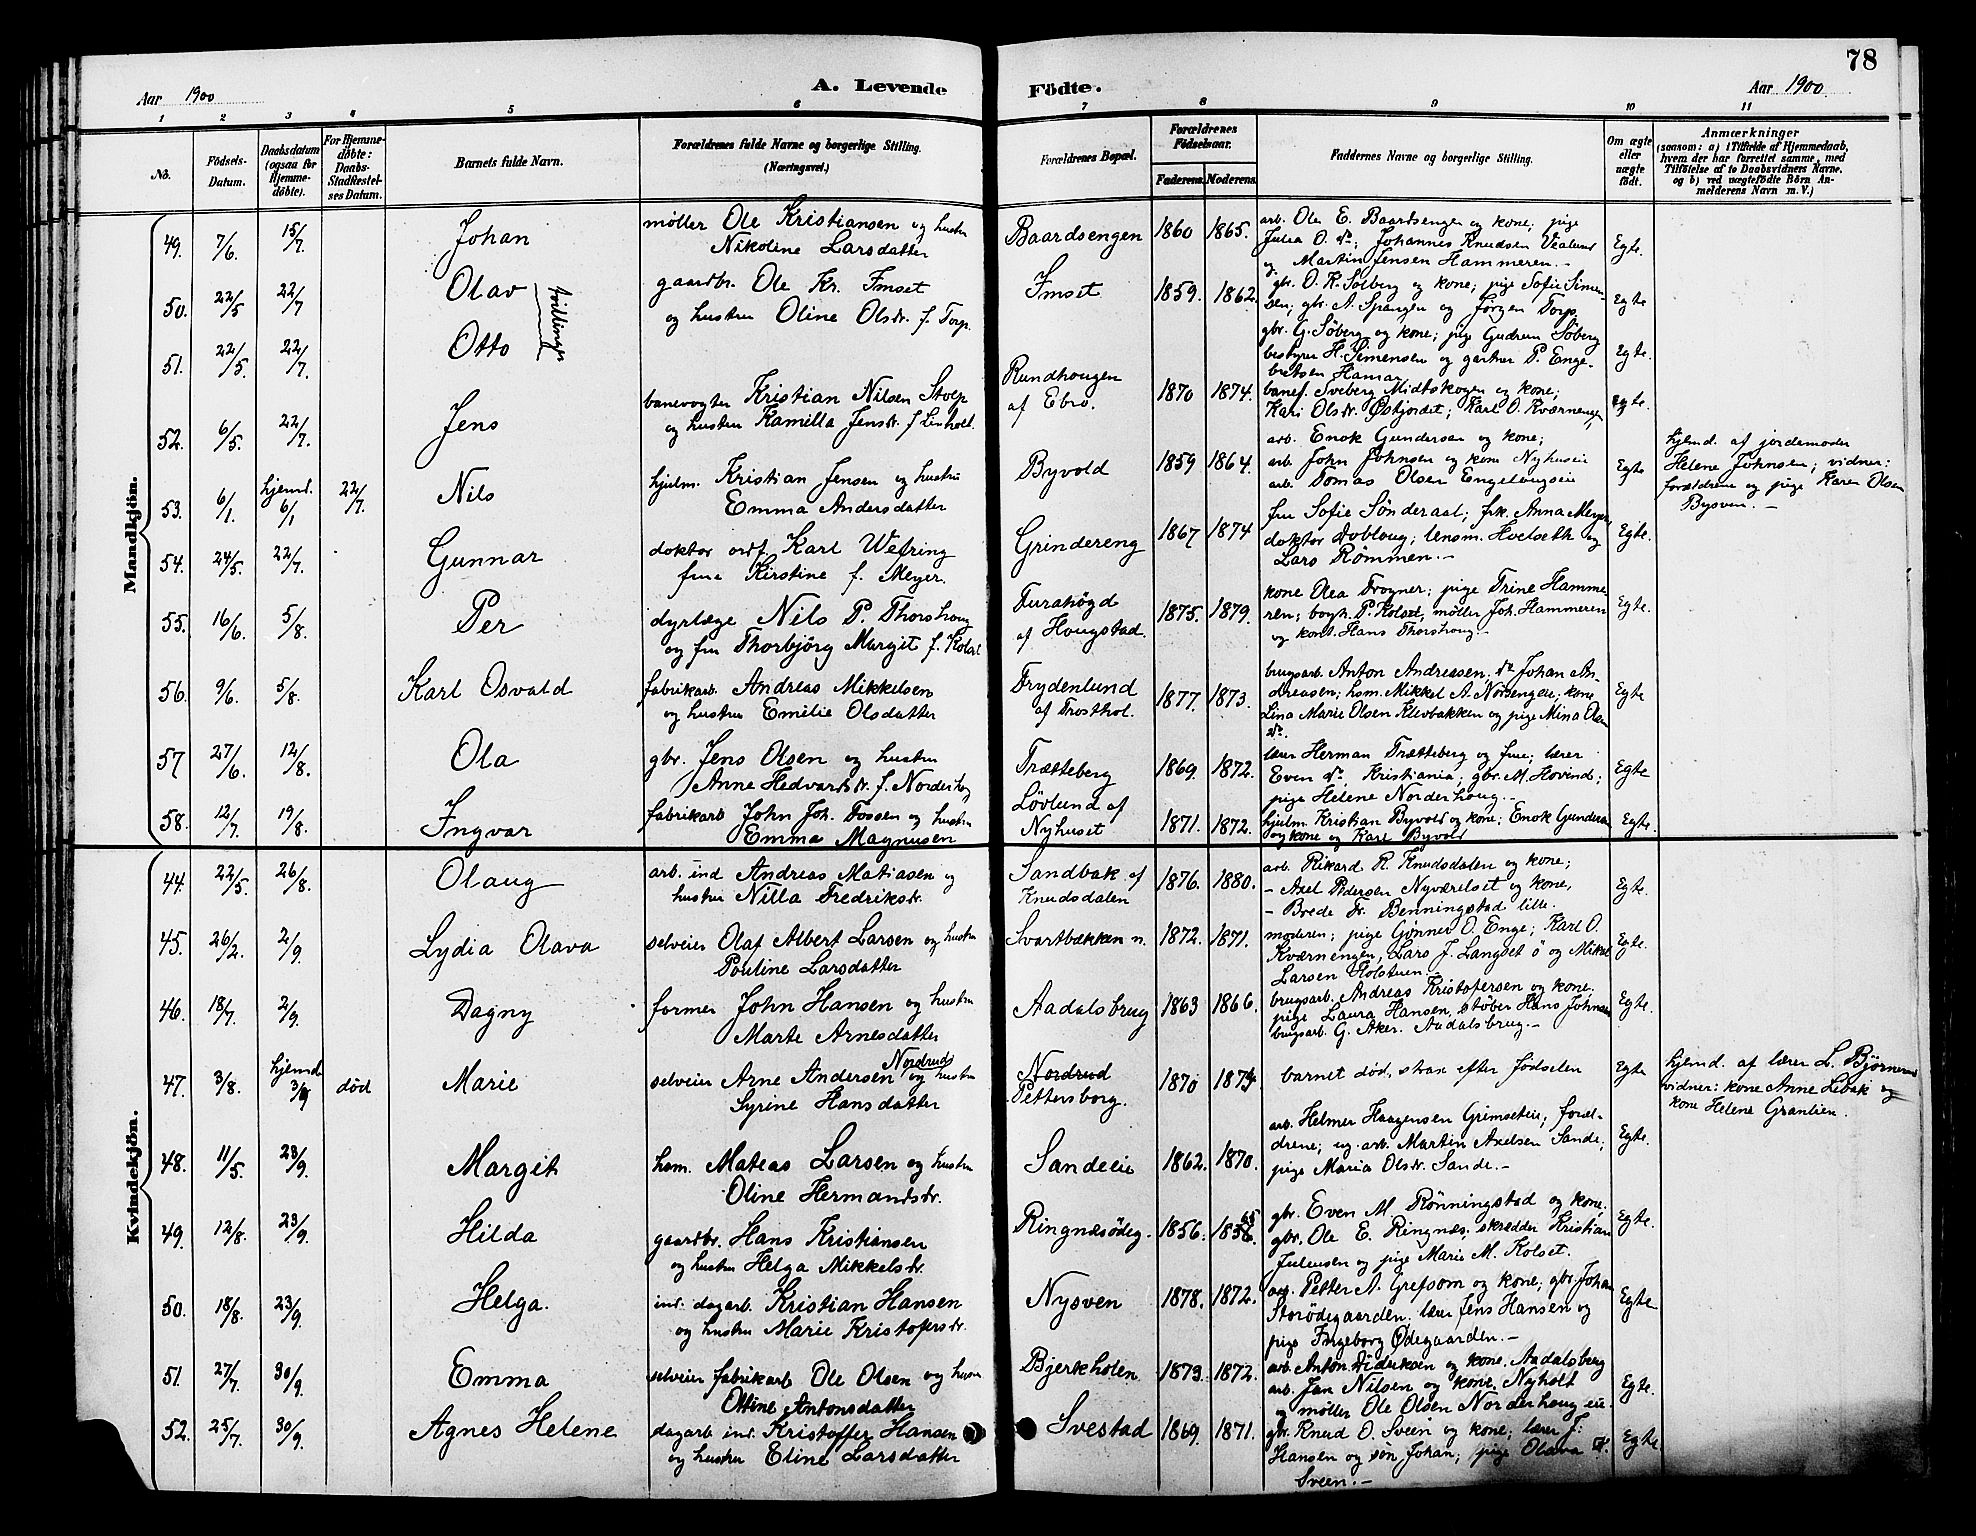 78
Aar 1900
A. Levende
Födte.
Aar 1900.
1 2 3 4 5 6 7 8 9 10 11
No.
Födsels-
Datum.
Daabsdatum
(ogsaa for
Hjemme-
döbte).
For Hjemme-
döbte:
Daabs-
Stadfæstel-
ses Datum.
Barnets fulde Navn.
Forældrenes fulde Navne og borgerlige Stilling.
(Næringsvei.)
Forældrenes Bopæl.
Forældrenes
Födselsaar.
Faderens. Moderens.
Faddernes Navne og borgerlige Stilling.
Om ægte
eller
uægte
födt.
Anmærkninger
(saasom: a) i Tilfælde af Hjemmedaab,
hvem der har forrettet samme, med
Tilföielse af to Daabsvidners Navne,
og b) ved uægtefödte Börn An-
melderens Navn m. V.)
Mandkjön.
49. 7/6. 15/7. Johan
möller Ole Kristiansen og hustru
Nikoline Larsdatter
Baardsengen 1860 1865.
arb. Ole E. Baardsengen og kone; pige
Julia O. do; Johannes Knudsen
og Martin Jensen Hammeren.-
Egte.
50. 22/5 22/7 Olav
Tvillinger
gaardbr. Ole Kr. Imset
og hustru Oline Olsdr. f. Torp.
Imset 1859. 1862.
gbr. O. K. Solberg og kone; pige Sofie Simen-
sen; gbr. A. Spangen og Jörgen Torp.
Egte
51. 22/5. 22/7. Otto
gbr. G. Söberg og kone; pige Gudrun Söberg
bestyrer H. Simensen og gartner P. Enge-
bretsen Hamar
Egte.
52. 6/5 22/7. Jens
banevogter Kristian Nilsen Stolp
og hustru Kamilla Jensdr. f. Linholt.
Rundhougen
af Ebro.
1870 1874.
banef. Sveberg Midtskogen og kone;
Kari Olsdr. Østjordet; Karl O. Kværnengen,
Egte.
53. 6/1. hjemd. 6/1 22/7. Nils
hjulm. Kristian Jensen og hustru
Emma Andersdatter
Byvold 1859 1864.
arb. Enok Gundersen og kone;
arb. John Johnsen og kone Nyhuseie
arb. Tomas Olsen Engebugseie
Egte
hjemd. af jordemoder
Helene Johnsen; vidner:
forældrene og pige Karen Olsen
Bysven.-
54. 24/5. 22/7. Gunnar
doktor ordf. Karl Wefring
frue Kirstine f. Meyer.
Grindereng 1867 1874
fru Sofie Sönderaal; frk. Anna Meyer,
doktor Dobloug; lensm. Hvelseth og
Lars Römmen.-
Egte.
55. 16/6. 5/8. Per
dyrlæge Nils P. Thorshoug
og fru Thorbjörg Margit f. Kolset
Furahögd
af Hougstad.
1875. 1879.
kone Olea Frogner; pige Trine Hamme-
ren; bogh. P. Kolset, möller Joh. Hammeren
og kont. Hans Thorshoug.-
Egte.
56. 9/6. 5/8. Karl Osvald
fabrikarb. Andreas Mikkelsen
og hustru Emilie Olsdatter
Frydenlund
af Frosthol.
1877. 1873.
brugsarb. Anton Andreasen, do Johan An-
dreasen; hsm. Mikkel A. Norsengeie, kone
Lina Marie Olsen Klevbakken og pige Mina Olsen
do.
Egte
57 27/6. 12/8. Ola
gbr. Jens Olsen og hustru
Anne Hedvardsdr. f. Norderhog
Trætteberg 1869. 1872.
lærer Herman Trætteberg og frue; lærer
Even do Kristiania; gbr. M. Hovind;
pige Helene Norderhoug.-
Egte
58. 12/7. 19/8. Ingvar
fabrikarb John Joh. Fossen og hustru
Emma Magnusen
Lövlund af
Nyhuset
1871. 1872.
hjulm. Kristian Byvold og kone; Enok Gundersen
og kone og Karl Byvold
Egte.
Kvindekjön.
44. 22/5. 26/8. Olaug
arb. ind Andreas Matiasen og
hustru Nilla Fredriksdr.
Sandbak af
Knudsdalen
1876. 1880.
arb. Rikard R. Knudsdalen og kone;
- Axel Pedersen Nyværelset og kone,
- Brede Fr. Benningstad lille.
Egte.
45. 26/2. 2/9. Lydia Olava
selveier Olaf Albert Larsen og hustru
Pouline Larsdatter
Svartbækken n. 1872. 1871.
moderen; pige Gönner O. Enge; Karl O.
Kværnengen, Lars J. Langset ö og Mikkel
Larsen Holstuen.-
Egte.
46. 18/7. 2/9. Dagny
former John Hansen og hustru
Marte Arnesdatter
Aadalsbrug 1863 1866.
brugsarb. Andreas Kristofersen og kone.
pige Laura Hansen, stöber Hans Johnsen
brugsarb. G. Aker. Aadalsbrug.-
Egte.
47. 3/8. hjemd. 3/8 död Marie
selveier Arne Andersen Nordrud og hustru
Syrine Hansdatter
Nordrud
Pettersborg.
1870 1874.
barnet död, strax efter födselen
Egte
hjemd. af lærer L. Björnerud
vidner: kone Anne Libak og
kone Helene Granlien.
48. 11/5. 23/9. Margit
hsm. Mateas Larsen og hustru
Oline Hermandsdr.
Sandeeie 1862. 1870.
arb. Helmer Haagensen Grimseteie; foræl-
drene; ug. arb. Martin Axelsen Sande;
pige Maria Olsdr. Sande.-
Egte.
49. 12/8. 23/9. Hilda
gaardbr. Hans Kristiansen
og hustru Helga Mikkelsdr.
Ringnæsödeg. 1856.
gbr. Even M. Rönningstad og kone,
gbr. Ole E. Ringnæs, skrædder Kristian
Juliusen og pige Marie M. Kolset.
Egte.
50. 18/8. 23/9. Helga.
ind. dagarb. Kristian Hansen
og hustru Marie Kristofersdr.
Nysven 1878. 1872.
arb. Petter A. Grefsom og kone; gbr. Johan
Storödegaarden; lærer Jens Hansen og
pige Ingeborg Ødegaarden.-
Egte
51. 27/7. 30/9. Emma
selveier fabrikarb Ole Olsen og hustru
Ottine Antonsdatter
Bjerkholen 1873. 1872.
arb. Anton Didriksen og kone, Aadalsberg
arb. Jan Nilsen og kone, Nyholt
og möller Ole Olsen Norderhoug eie.
Egte.
52. 25/7. 30/9. Agnes Helene
dagarb ind. Kristoffer Hansen
og hustru Eline Larsdatter
Svestad 1869. 1871.
gbr. Knud O. Sveen og kone; lærer J.
Hansen og sön Johan; pige Olava
Sveen.-
Egte